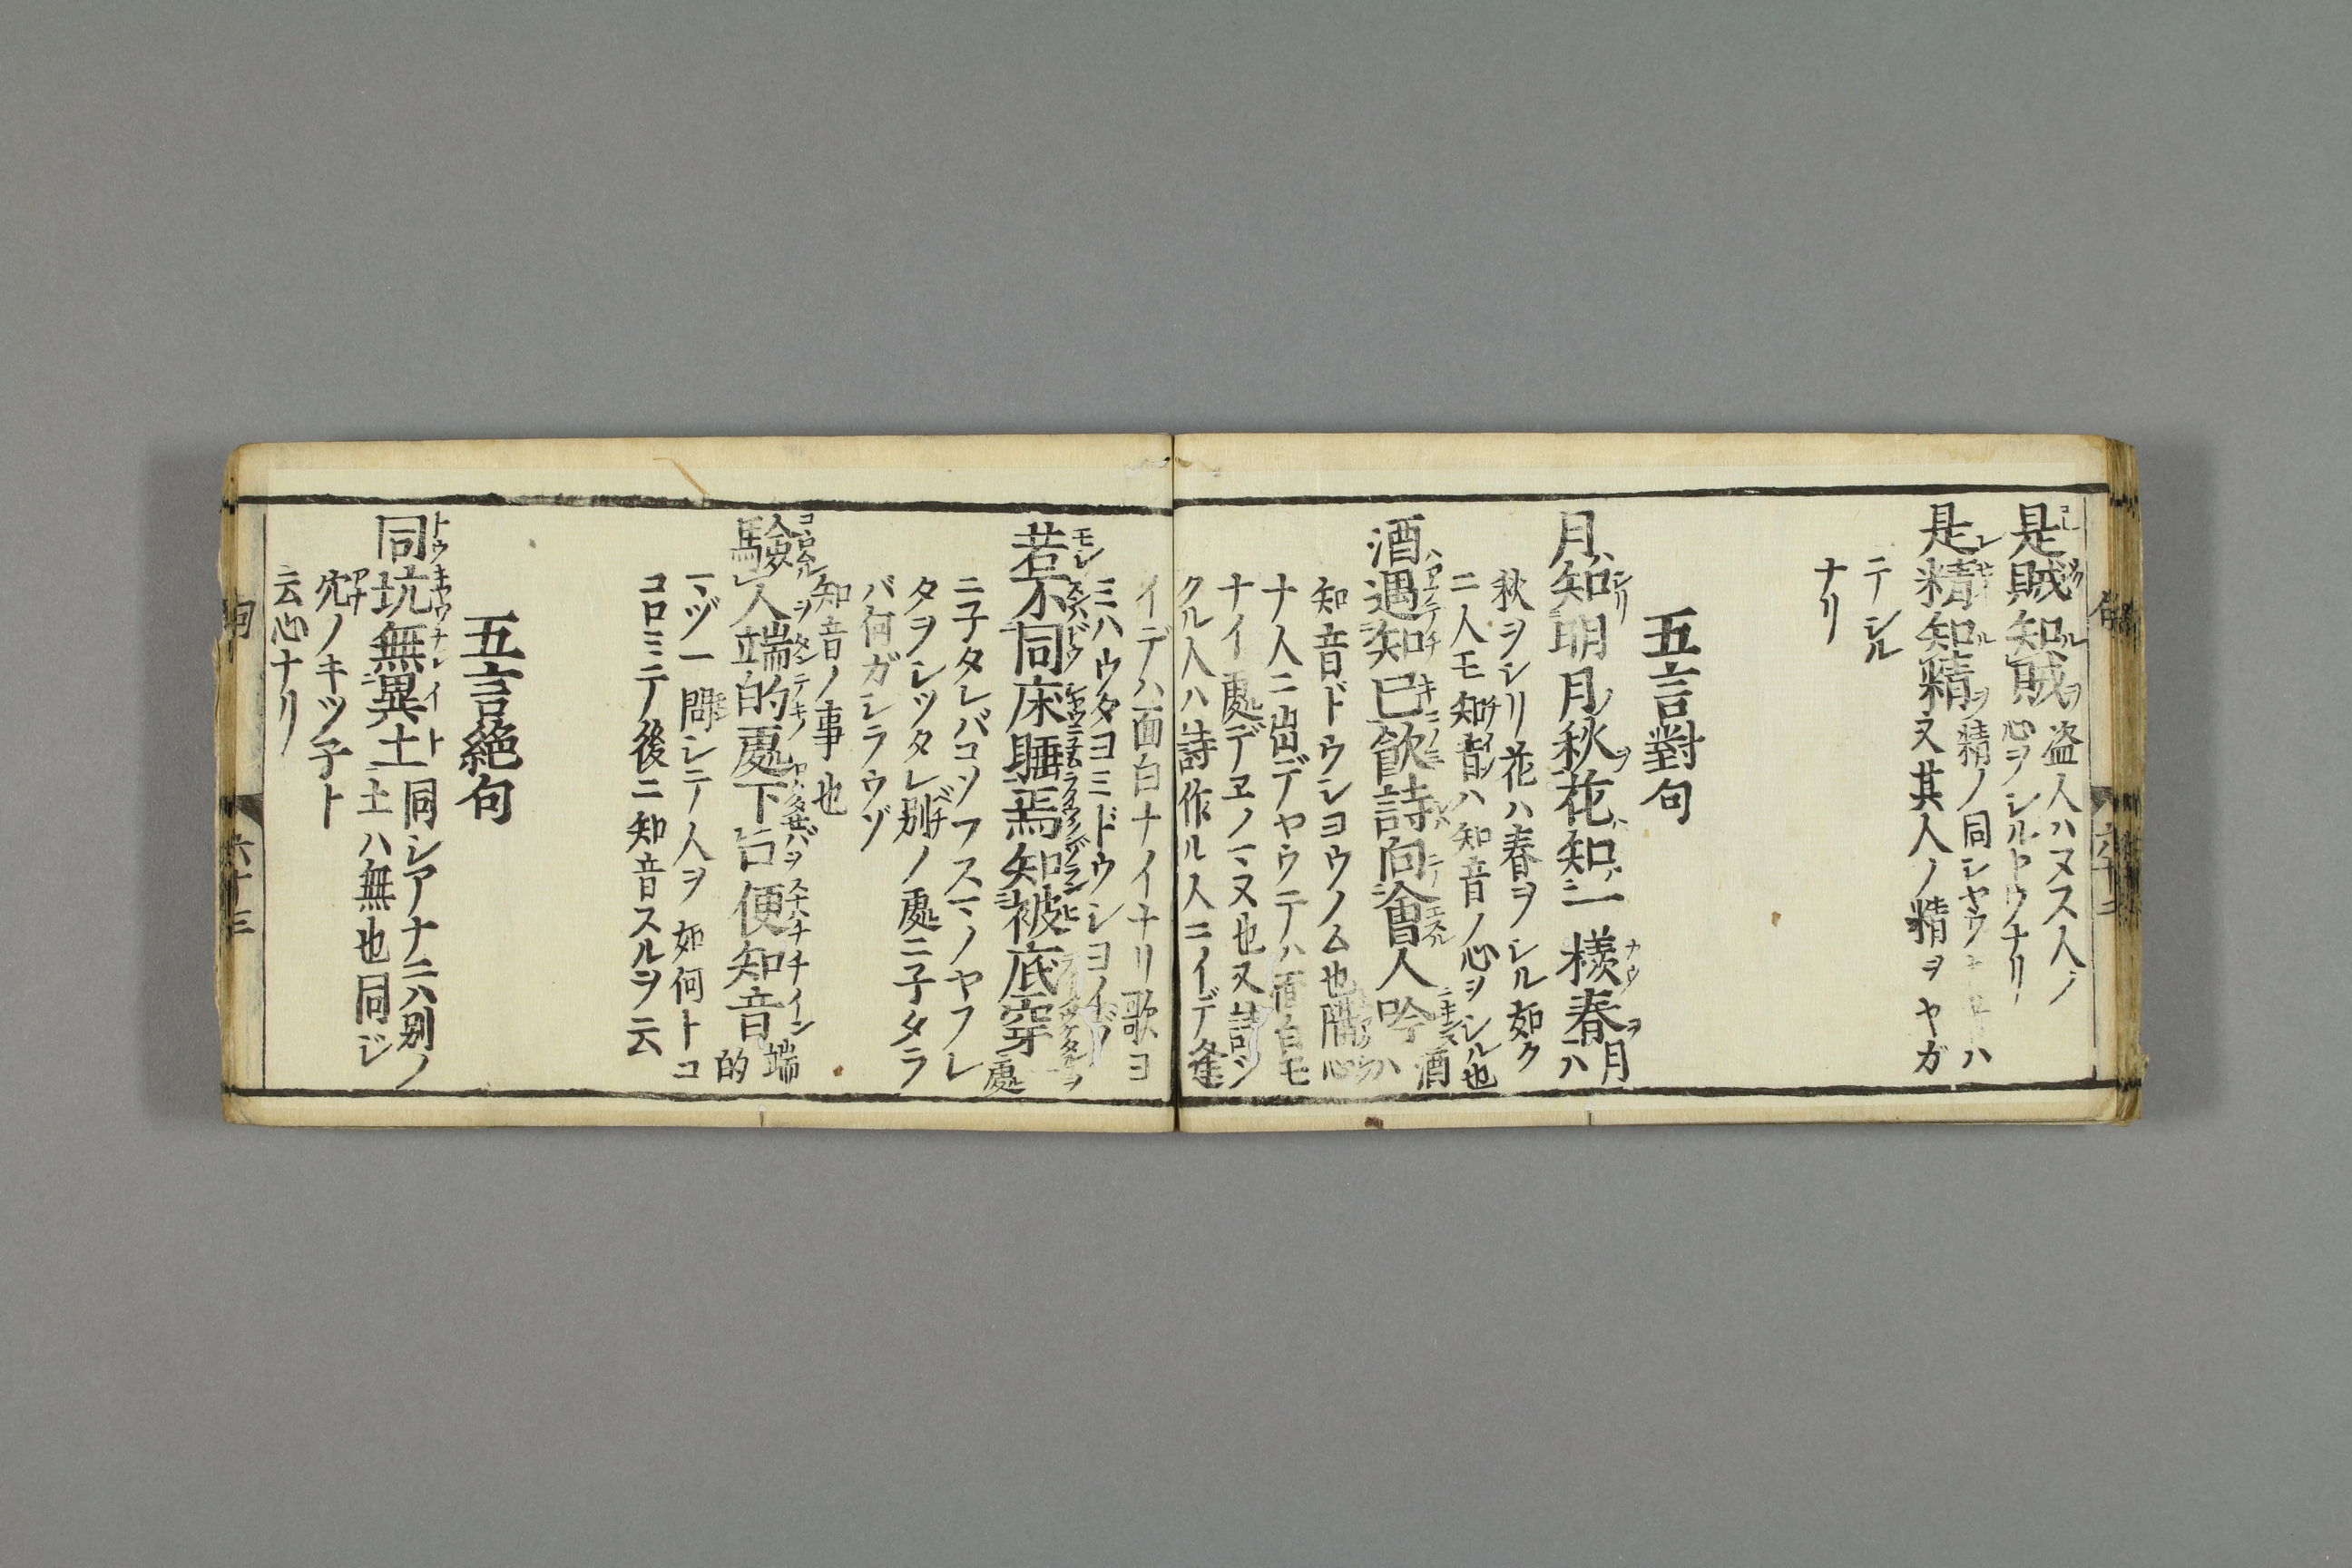 是賊知賊
盗人ハヌス人ノ
心ヲシルヤウナリ
是精知精
精ノ同シヤウ
又其人ノ精ヲヤガ
テシル
ナリ
五言對句
月知明月秋花知一樣春
月ハ
秋ヲシリ花ハ春ヲシル如ク
二人モ知音ハ知音ノ心ヲシル也
酒遇知己飲詩向會人吟
酒ハ
知音ドウシヨウノム也
ナ人ニ出デヤウテハ面白モ
ナイ處デヱノヿヌ也又詩ツ
クル人ハ詩作ル人ニイデ逢
イデハ面白ナイナリ歌ヨ
ミハウタヨミドウシヨイゾ
若不同床睡焉知被底穿
處
ニ子タレバコソフスマノヤフレ
タヲシツタレ別ノ處ニ子タラ
バ何ガシラウゾ
知音ノ事也
驗人端的處下口便知音
端
的
マヅ一問シテ人ヲ如何トコ
コロミテ後ニ知音スルヲ云
五言絶句
同坑無異土
同シアナニハ別ノ
土ハ無也同ジ
穴ノキツ子ト
云心ナリ
六十三